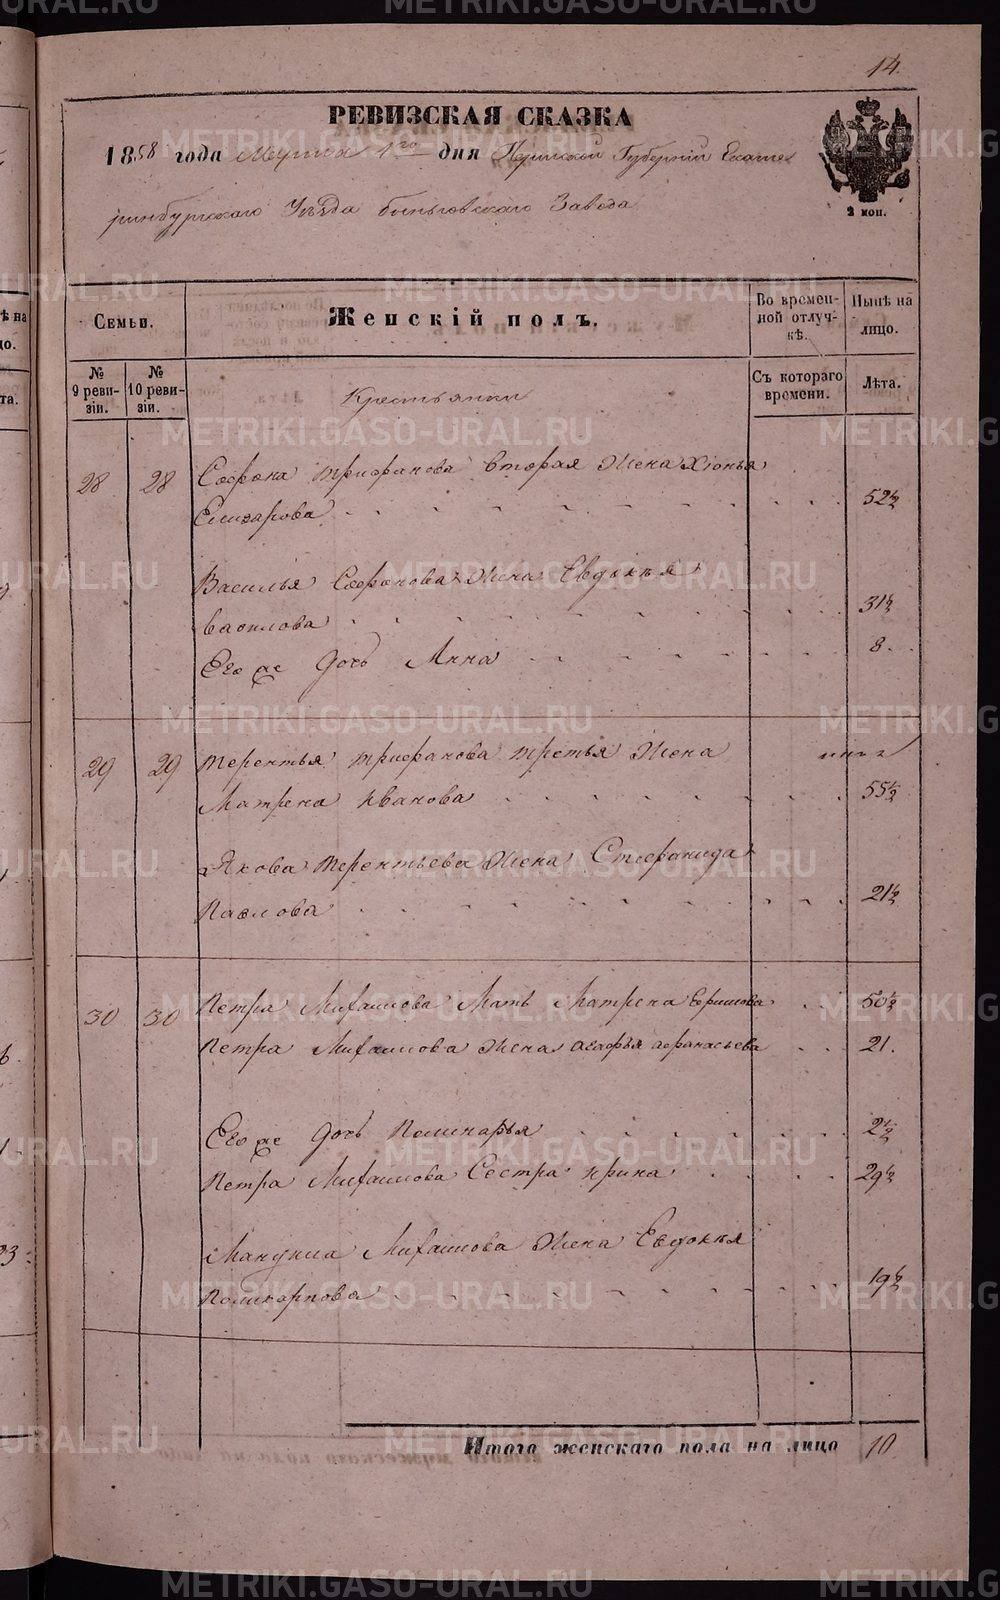 14.
РЕВИЗСКАЯ СКАЗКА
1858 года Марта 1го дня Пермской Губернии Екате
ринбургскаго Уѣзда Быньговскаго Завода
2 коп.
Семьи.
Женскій полъ.
Во времен-
ной отлуч-
кѣ.
Нынѣ на
лицо.
№
9 реви-
зіи.
№
10 реви-
зіи.
Крестьянки
Съ котораго
времени.
Лѣта.
28 28 Софрона Трифанова вторая жена Хіонья
Елизарова 52½
Василья Софронова жена Евдокѣя
Васплова 31½
Его же дочь Анна 8
29 29 Терентья Трифанова третья жена
Матрена Иванова 55½
Якова Терентьева жена Стефанида
Павлова 21½
30 30 Петра Михаилова Мать Матрена 50½
Петра Михаилова жена Агафья Афанасьева 21.
Его же дочь Полинарья 2½
Петра Михаилова Сестра Ирина 29½
Мануила Михаилова жена Евдокѣя
Поликарпова 19½
Итого женскаго пола на лицо 10
METRIKI.GASO-URAL.RU